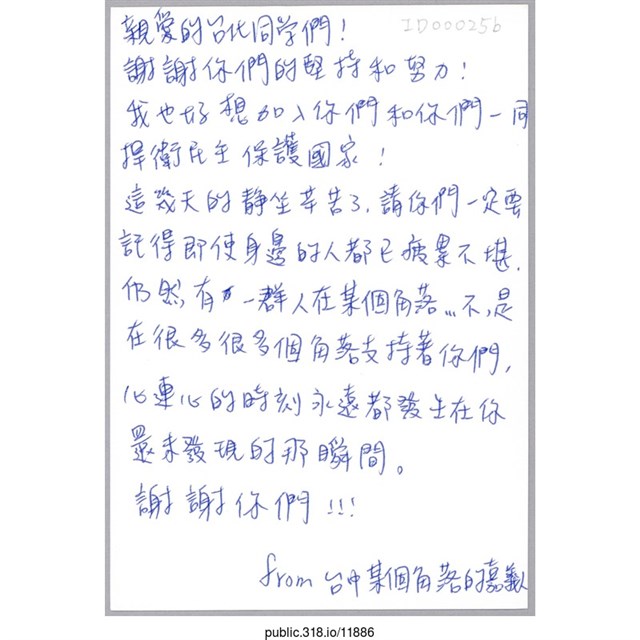 ID000256
親愛的台北同学們!
謝謝你們的堅持和努力!
我也好想加入你們和你們一同
捍衛民主保護國家!
這幾天的静坐辛苦了,請你們一定要
記得即使身邊的人都已疲累不堪,
仍然有一群人在某個角落...不,是
在很多很多個角落支持著你們,
心連心的時刻永遠都發生在你
還未發現的那瞬間。
謝謝你們!!!
from 台中某個角落的嘉義人
public.318.io/11886